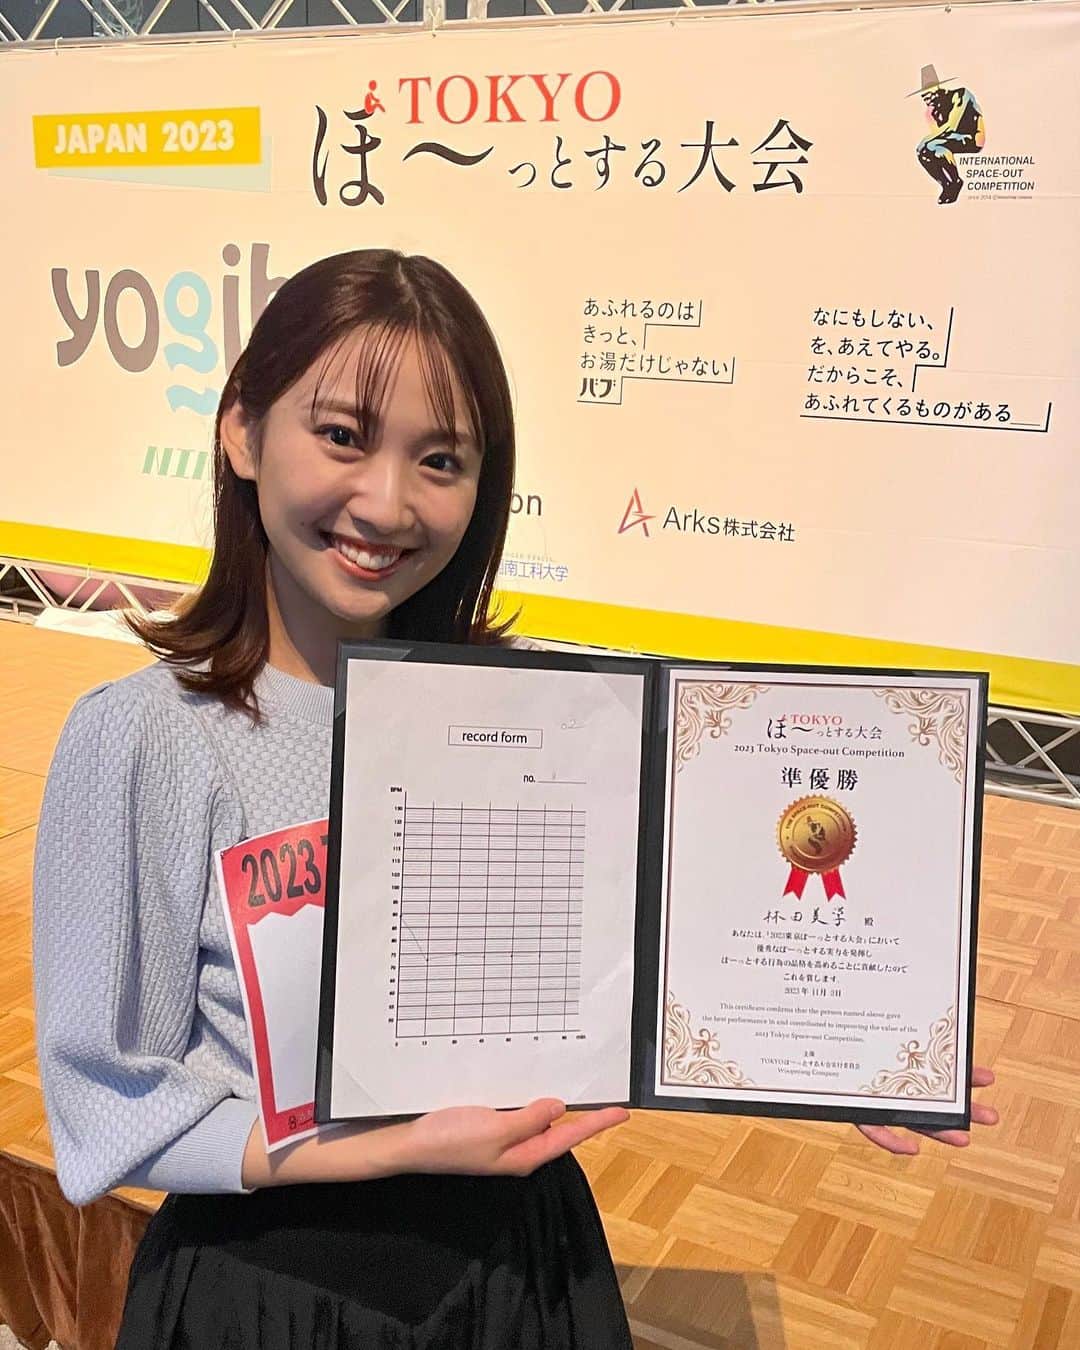 JAPAN 2023
TOKYO
ぼ〜っとする大会
INTERNATIONAL
SPACE-OUT
COMPETITION
yogib
あふれるのは
きっと、
お湯だけじゃない
バブ
なにもしない、
を、あえてやる。
だからこそ、
あふれてくるものがある__
on
Arks株式会社
南工科大学
2023
record form
02
no.
BPM
0 15 30 45 60 75 90 min
TOKYO
ぼ〜っとする大会
2023 Tokyo Space-out Competition
準優勝
THE SPACE-OUT COMPETITION
林田美学 殿
あなたは、「2023東京ぼーっとする大会」において
優秀なぼーっとする実力を発揮し
ぼーっとする行為の品格を高めることに貢献したので
これを賞します。
2023年 11月 3日
This certificate confirms that the person named above gave
the best performance in and contributed to improving the value of the
2023 Tokyo Space-out Competition.
主催
TOKYOぼーっとする大会実行委員会
Woopsyang Company